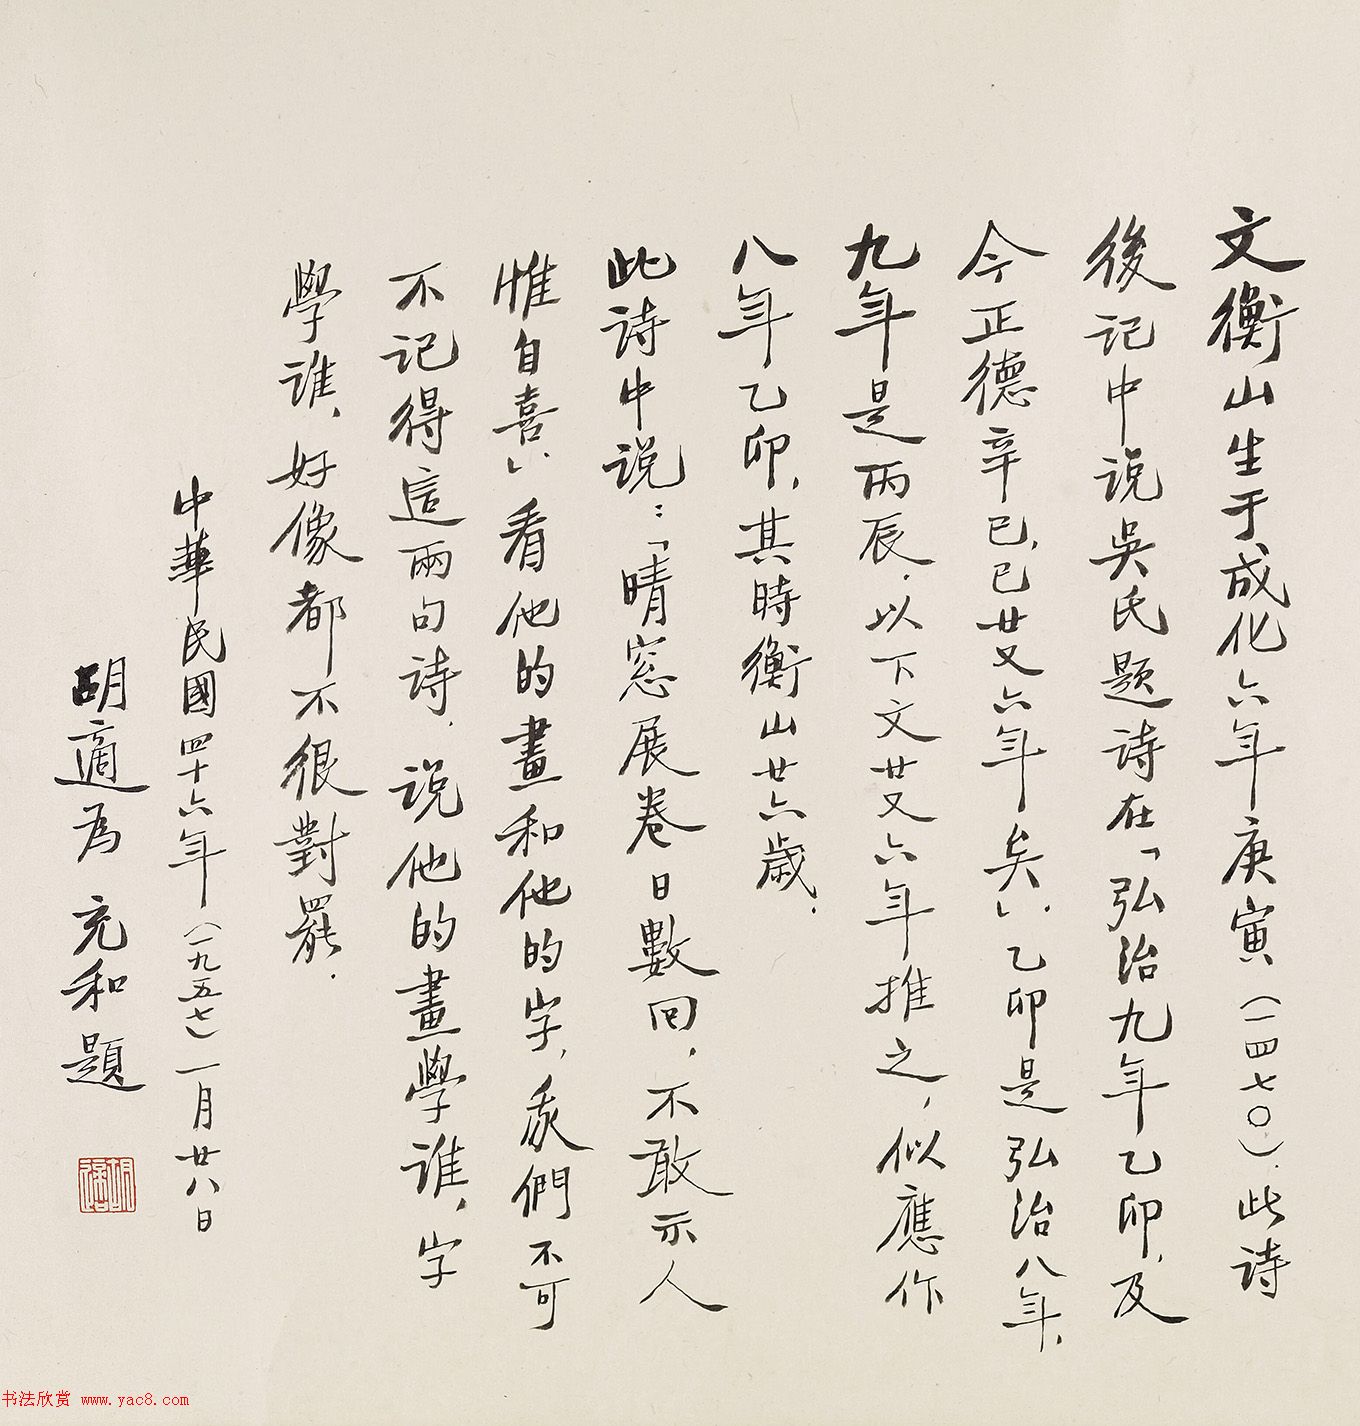 文衡山生于成化六年庚寅（一四七〇）.此詩
後記中説吳氏題詩在「弘治九年乙卯，及
今正德辛巳，已廿又六年矣」.乙卯是弘治八年，
九年是丙辰.以下文廿又六年推之，似應作
八年乙卯，其時衡山廿六歲.
此詩中説：「晴窓展卷日數回，不敢示人
惟自喜」看他的畫和他的字，我們不可
不記得這兩句詩.説他的畫學誰，字
學誰，好像都不很對罷.
中華民國四十六年（一九五七）一月廿八日
胡適為 充和題
胡適
书法欣赏 www.yac8.com